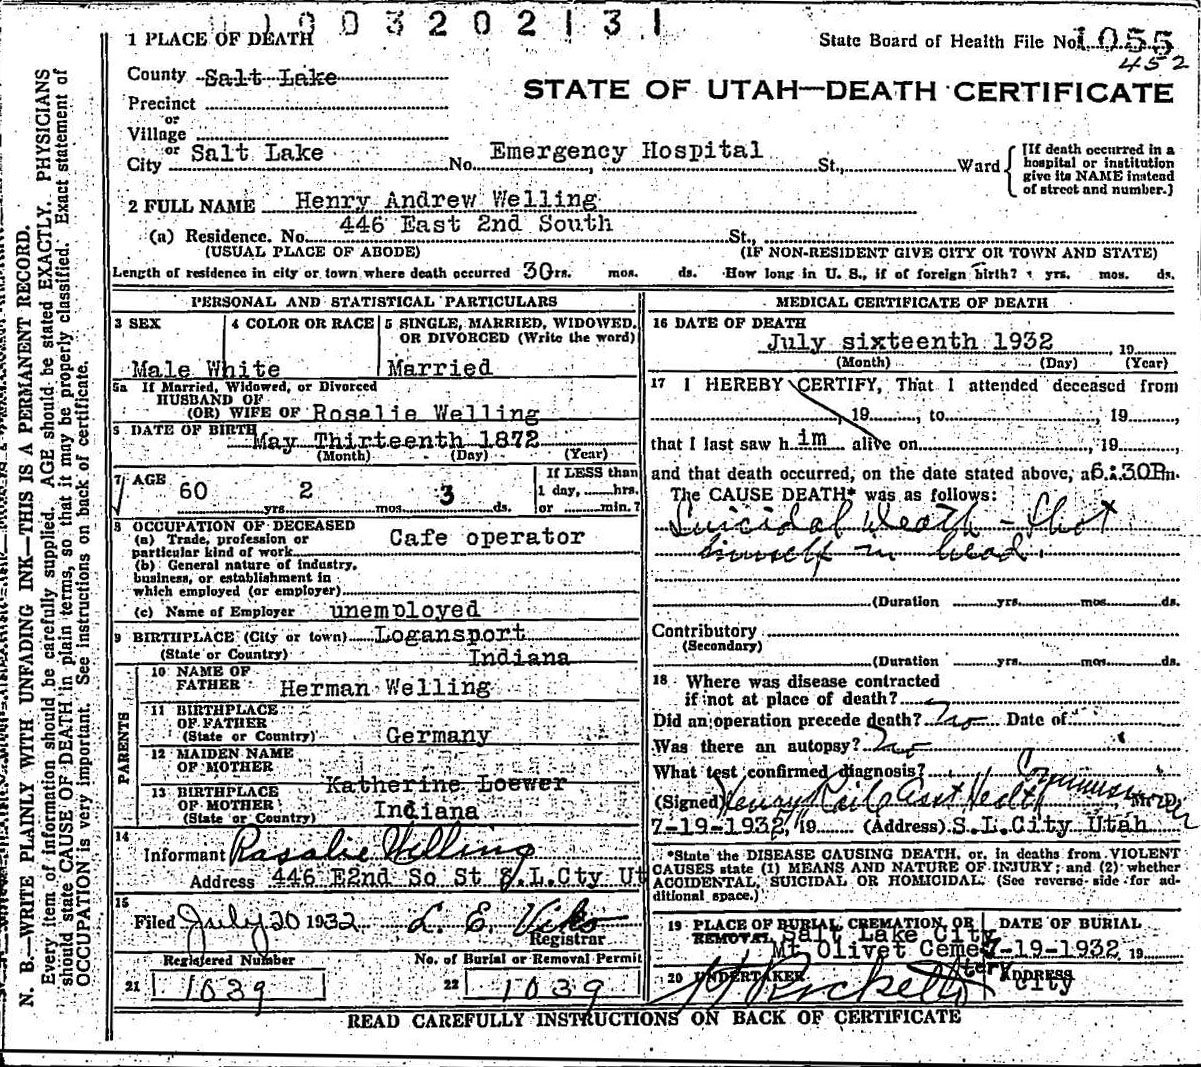 1003202131
1 PLACE OF DEATH
State Board of Health File No. 1055
452
County Salt Lake
STATE OF UTAH—DEATH CERTIFICATE
Precinct
or
Village
or
City Salt Lake No. Emergency Hospital St., Ward
[If death occurred in a
hospital or institution
give its NAME instead
of street and number.]
2 FULL NAME Henry Andrew Welling
(a) Residence. No. 446 East 2nd South St.,
(USUAL PLACE OF ABODE) (IF NON-RESIDENT GIVE CITY OR TOWN AND STATE)
Length of residence in city or town where death occurred 30rs. mos. ds. How long in U. S., if of foreign birth? yrs. mos. ds.
PERSONAL AND STATISTICAL PARTICULARS
3 SEX 4 COLOR OR RACE 5 SINGLE, MARRIED, WIDOWED,
OR DIVORCED (Write the word)
Male White Married
5a If Married, Widowed, or Divorced
HUSBAND OF
(OR) WIFE OF Rosalie Welling
6 DATE OF BIRTH May Thirteenth 1872
(Month) (Day) (Year)
7 AGE 60 yrs. 2 mos. 3 ds.
If LESS than
1 day, hrs.
or min.?
8 OCCUPATION OF DECEASED
(a) Trade, profession or
particular kind of work Cafe operator
(b) General nature of industry,
business, or establishment in
which employed (or employer)
(c) Name of Employer unemployed
9 BIRTHPLACE (City or town) Logansport
(State or Country) Indiana
PARENTS
10 NAME OF
FATHER Herman Welling
11 BIRTHPLACE
OF FATHER
(State or Country) Germany
12 MAIDEN NAME
OF MOTHER
Katherine Loewer
13 BIRTHPLACE
OF MOTHER
(State or Country) Indiana
14
Informant Rosalie Welling
Address 446 E2nd So St S.L.Cty Ut
15
Filed July 20 1932 L. E. Viko
Registrar
Registered Number No. of Burial or Removal Permit
21 1039 22 1039
MEDICAL CERTIFICATE OF DEATH
16 DATE OF DEATH
July sixteenth 1932, 19
(Month) (Day) (Year)
17 I HEREBY CERTIFY, That I attended deceased from
, 19, to , 19
that I last saw h im alive on , 19
and that death occurred, on the date stated above, a6:30Pm.
The CAUSE DEATH* was as follows:
Suicidal Death - Shot
himself in head.
(Duration yrs. mos. ds.
Contributory
(Secondary)
(Duration yrs. mos. ds.
18 Where was disease contracted
if not at place of death?
Did an operation precede death? No Date of
Was there an autopsy? No
What test confirmed diagnosis?
(Signed) Henry Raile Asst Health Commissioner M. D.
7-19-1932, 19 (Address) S.L.City Utah
*State the DISEASE CAUSING DEATH, or, in deaths from VIOLENT
CAUSES state (1) MEANS AND NATURE OF INJURY; and (2) whether
ACCIDENTAL, SUICIDAL OR HOMICIDAL. (See reverse side for ad-
ditional space.)
19 PLACE OF BURIAL, CREMATION, OR DATE OF BURIAL
REMOVAL Salt Lake City
Mt Olivet Cemetery 7-19-1932, 19
20 UNDERTAKER ADDRESS
Ricketts City
READ CAREFULLY INSTRUCTIONS ON BACK OF CERTIFICATE
N. B.—WRITE PLAINLY WITH UNFADING INK—THIS IS A PERMANENT RECORD.
Every item of information should be carefully supplied. AGE should be stated EXACTLY. PHYSICIANS
should state CAUSE OF DEATH in plain terms, so that it may be properly classified. Exact statement of
OCCUPATION is very important. See instructions on back of certificate.